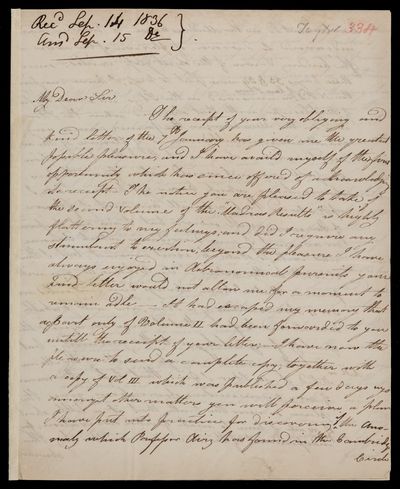 Rec'd Sep. 14 1836
Ans'd Sep. 15 Do
Taylor 334
My Dear Sir
The receipt of your very obliging and
kind letter of the 7th January has given me the greatest
possible pleasure, and I have avail'd myself of the first
opportunity which has since offered of acknowledging
its receipt. The notice you are pleased to take of
the second volume of the "Madras Results" is highly
flattering to my feelings, and did I require any
stimulant to exertion, beyond the pleasure I have
always enjoyed in Astronomical pursuits your
kind letter would not allow me for a moment to
remain idle. – It had escaped my memory that
a part only of Volume II had been forwarded to you
untill the receipt of your letter; I have now the
pleasure to send a complete copy, together with
a copy of Vol III which was published a few days ago
amongst other matters you will perceive a plan
I have put into practice for discovering the Ano-
maly which Professor Airy has found in the Cambridge
Circle